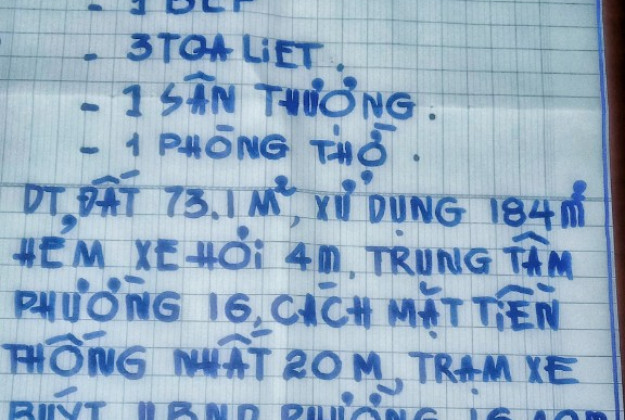 - 1 BẾP
- 3 TOA LiET.
- 1 SÂN THƯỢNG.
- 1 PHÒNG THỜ.
DT, ĐẤT 73.1 M², XỬ DỤNG 184 m²
HẺM XE HƠi 4m, TRUNG TÂM
PHƯỜNG 16, CÁCH MẶT TiỀN
THỐNG NHẤT 20 M, TRẠM XE
BUÝT, UBND PHƯỜNG 16